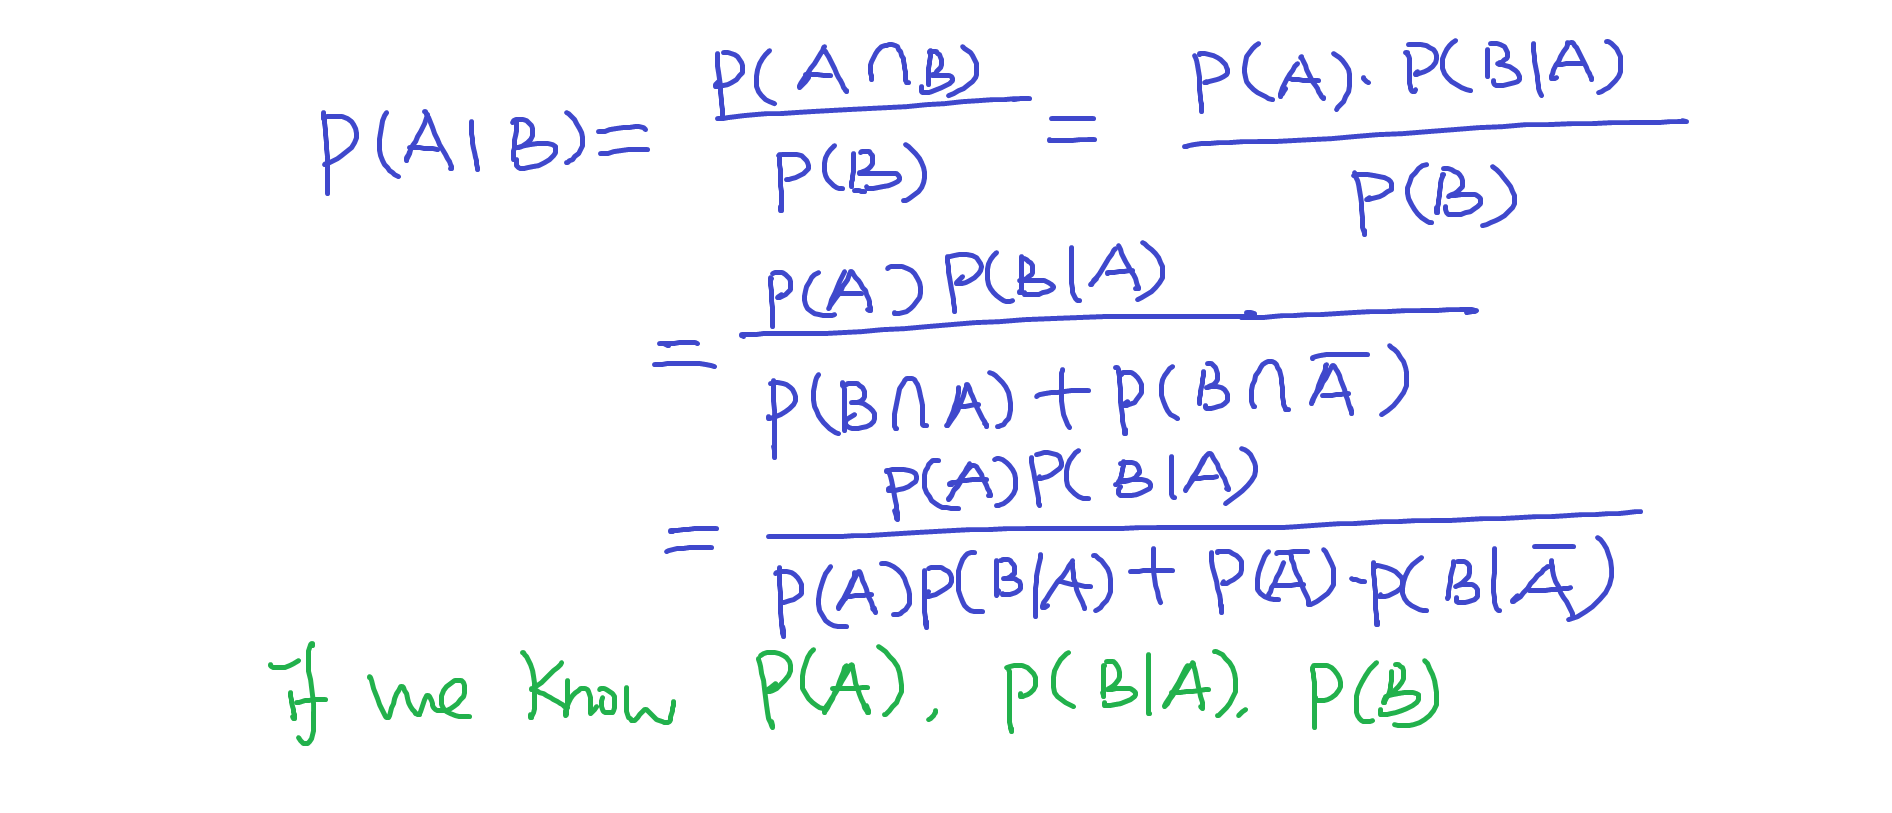 P(A|B) = P(A∩B) / P(B) = P(A)·P(B|A) / P(B)
= P(A)P(B|A) / P(B∩A) + P(B∩A̅)
= P(A)P(B|A) / P(A)P(B|A) + P(A̅)·P(B|A̅)
If we know P(A), P(B|A), P(B)